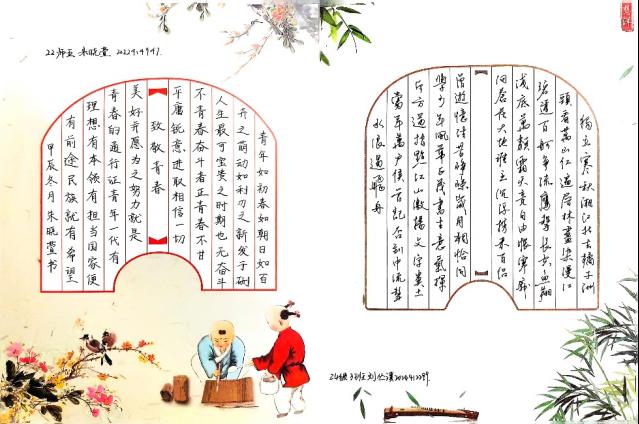 22师五 朱晓萱
青年如初春如朝日如百
卉之萌动如利刃之新发于硎
人生最可宝贵之时期也无奋斗
不青春奋斗者正青春不甘
平庸锐意进取相信一切
致敬青春
美好并愿为之努力就是
青春的通行证青年一代有
理想有本领有担当国家便
有前途民族就有希望
甲辰冬月朱晓萱书
独立寒秋湘江北去橘子洲
頭看萬山红遍层林盡染漫江
碧透百舸争流鹰擊长空鱼翔
浅底萬類霜天竞自由怅寥廓
问苍茫大地谁主沉浮携来百侣
曾遊忆往昔峥嵘岁月稠恰同
學少年風華正茂書生意氣揮
斥方遒指點江山激揚文字粪土
當年萬户侯曾記否到中流擊
水浪遏飛舟